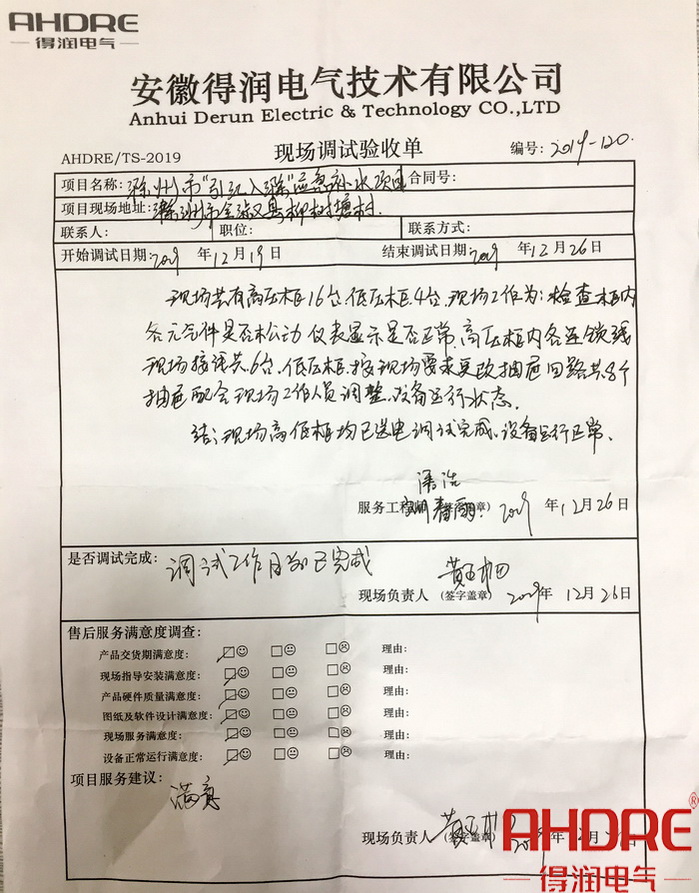 AHDRE
得润电气
安徽得润电气技术有限公司
Anhui Derun Electric & Technology CO.,LTD
AHDRE/TS-2019 现场调试验收单 编号:2019-120
项目名称:滁州市"引江入滁"应急补水项目 合同号:
项目现场地址:滁州市全椒县柳树塘村
联系人: 职位: 联系方式:
开始调试日期:2019年12月19日 结束调试日期:2019年12月26日
现场共有高压柜16台,低压柜4台,现场工作为:检查柜内
各元气件是否松动,仪表显示是否正常,高压柜内各连锁线
现场接线共6台,低压柜,按现场要求更改抽屉回路共8个
抽屉配合现场工作人员调整,设备运行状态.
结:现场高低柜均已送电调试完成,设备运行正常.
服务工程师 (签字盖章) 2019年12月26日
是否调试完成: 调试工作目前已完成
现场负责人 (签字盖章) 2019年12月26日
售后服务满意度调查:
产品交货期满意度: 理由:
现场指导安装满意度: 理由:
产品硬件质量满意度: 理由:
图纸及软件设计满意度: 理由:
现场服务满意度: 理由:
设备正常运行满意度: 理由:
项目服务建议:
满意
现场负责人 (签字盖章)
AHDRE®
得润电气